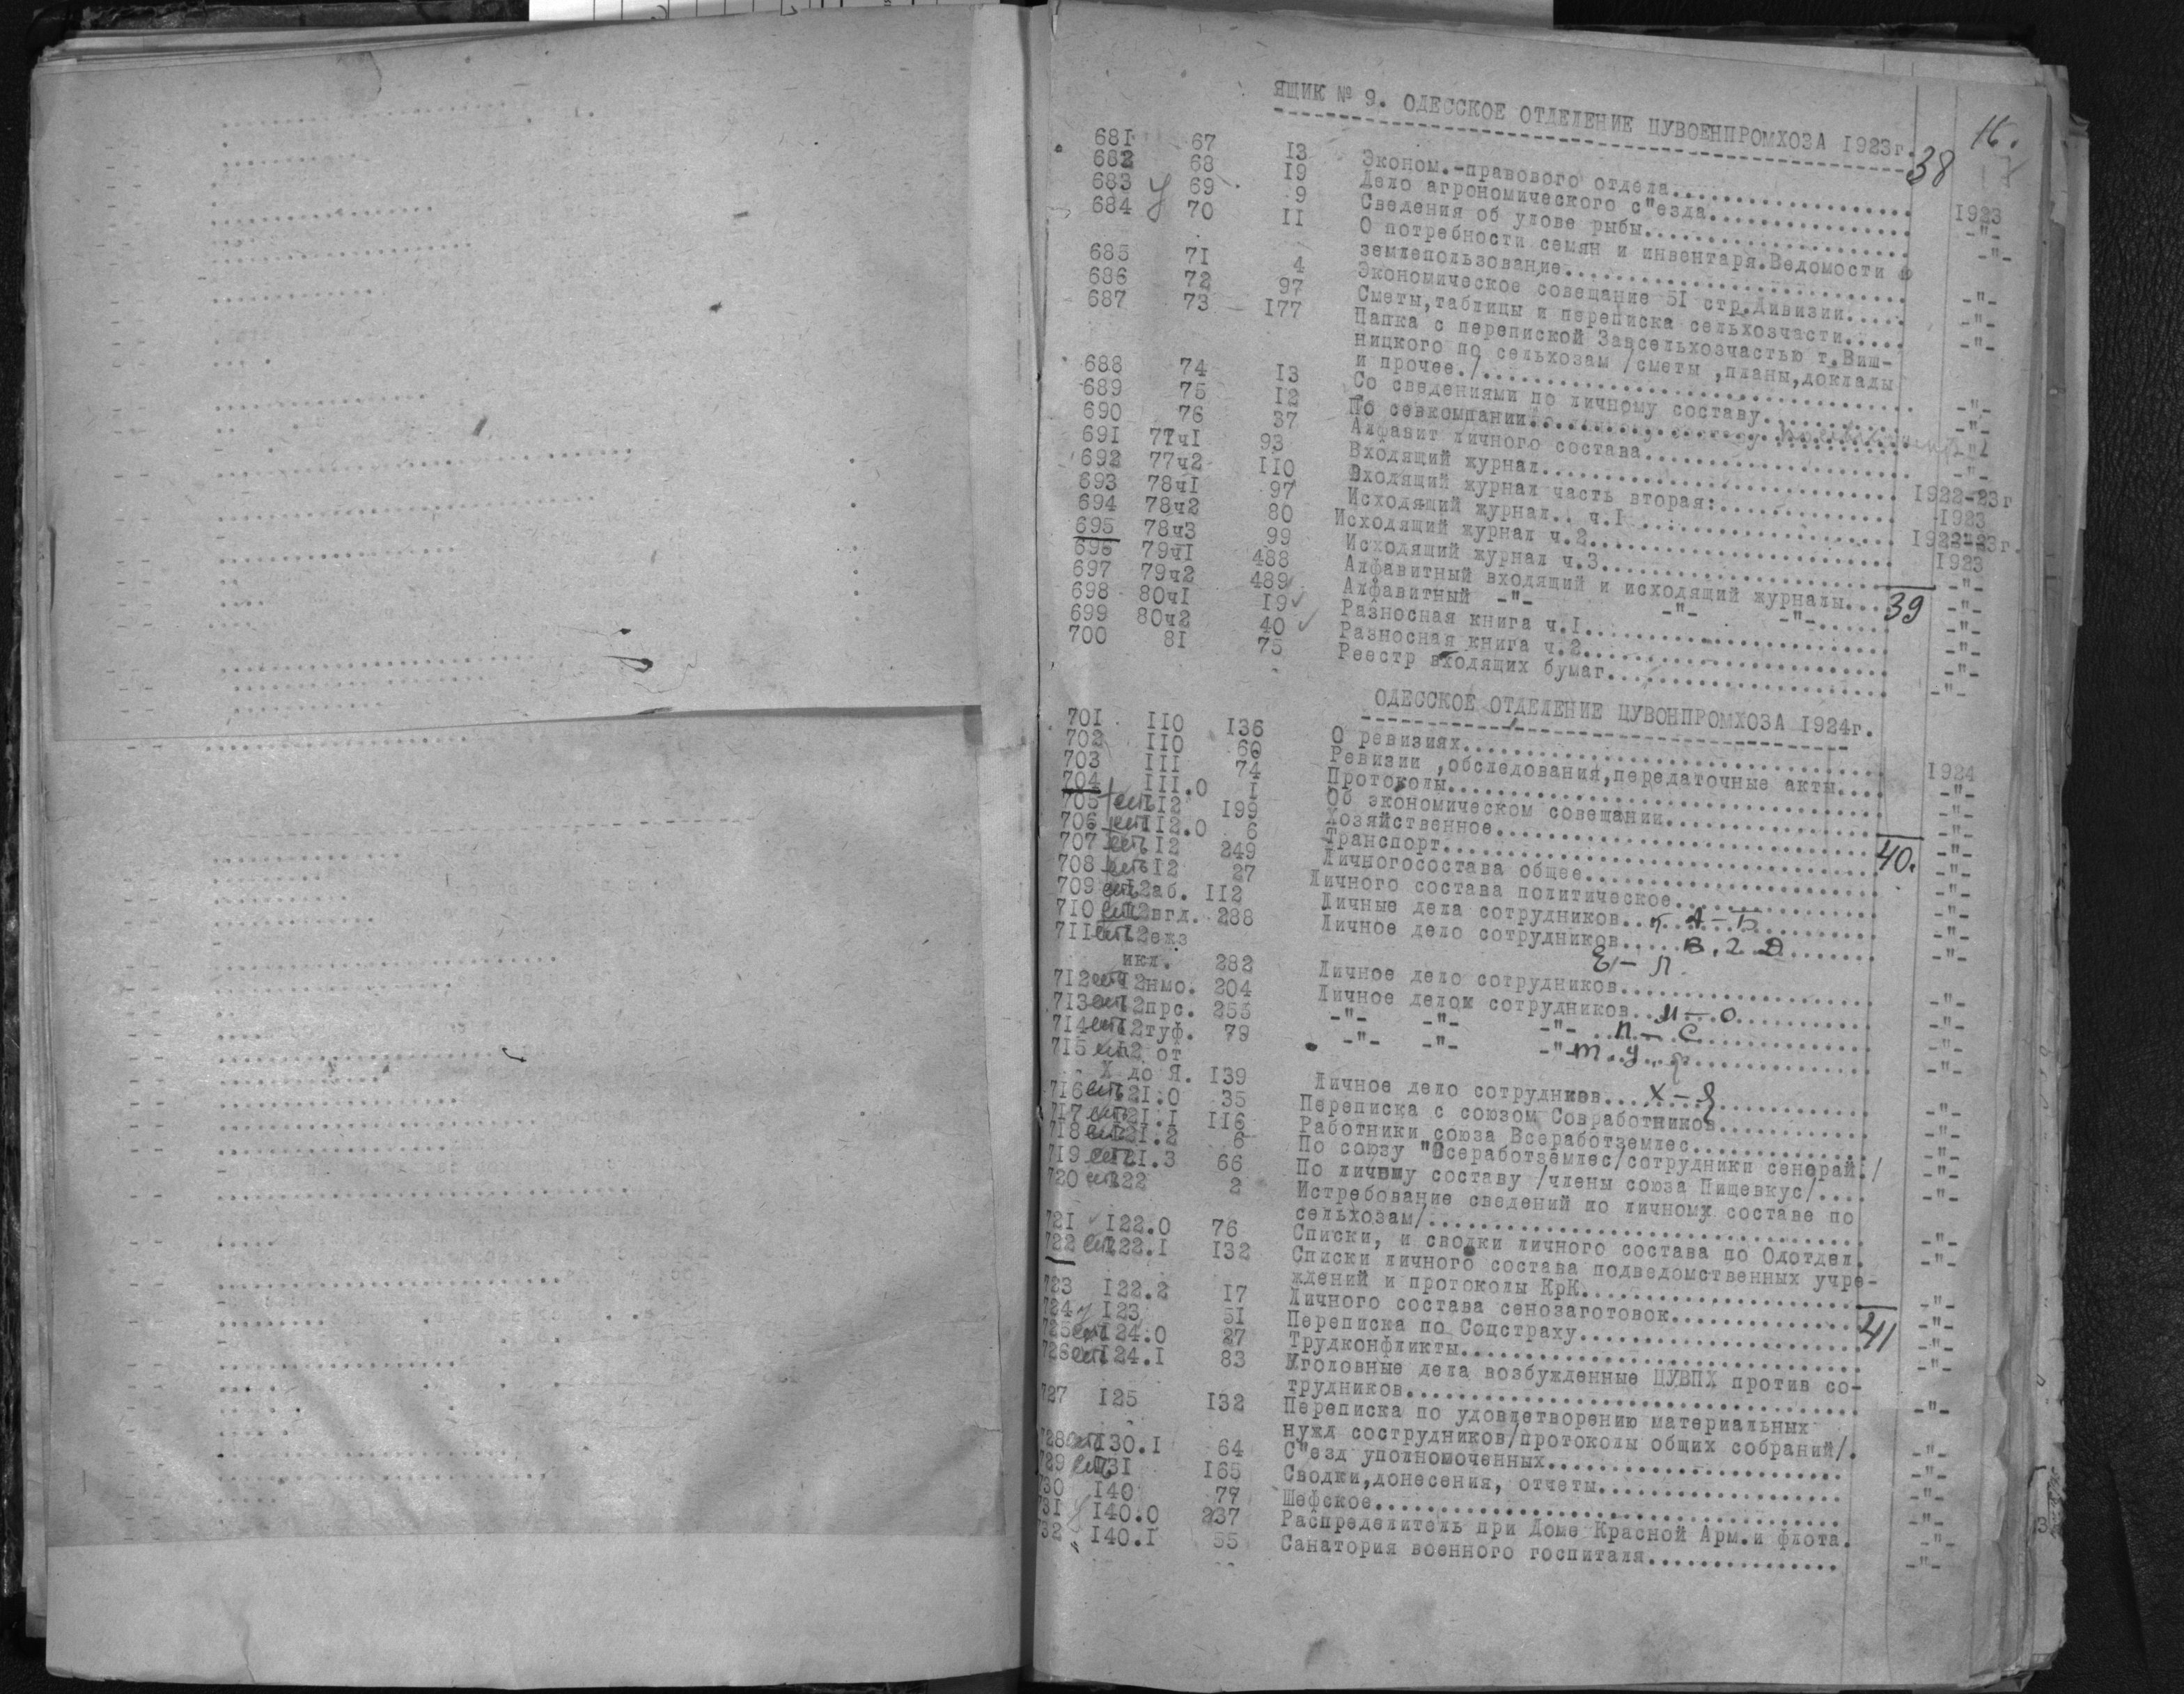 16.
ЯЩИК № 9. ОДЕССКОЕ ОТДЕЛЕНИЕ ЦУВОЕНПРОМХОЗА 1923г.
38
681 67 13 Эконом.-правового отдела................... 1923
682 68 19 Дело агрономического с"езда................ -"-
683 69 9 Сведения об улове рыбы..................... -"-
684 70 11 О потребности семян и инвентаря.Ведомости о
землепользование........................... -"-
685 71 4 Экономическое совещание 51 стр.Дивизии..... -"-
686 72 97 Сметы,таблицы и переписка сельхозчасти..... -"-
687 73 177 Папка с перепиской Завсельхозчастью т.Виш-
ницкого по сельхозам /сметы ,планы,доклады
и прочее./................................. -"-
688 74 13 Со сведениями по личному составу........... -"-
689 75 12 По севкомпании............................. -"-
690 76 37 Алфавит личного состава.................... -"-
691 77ч1 93 Входящий журнал............................ 1922-23г
692 77ч2 110 Входящий журнал часть вторая:.............. 1923
693 78ч1 97 Исходящий журнал.. ч.1 .................... 1922-23г.
694 78ч2 80 Исходящий журнал ч.2....................... 1923
695 78ч3 99 Исходящий журнал ч.3....................... -"-
696 79ч1 488 Алфавитный входящий и исходящий журналы.... 39 -"-
697 79ч2 489 Алфавитный -"- -"- -"-...... -"-
698 80ч1 19 Разносная книга ч.1........................ -"-
699 80ч2 40 Разносная книга ч.2........................ -"-
700 81 75 Реестр входящих бумаг...................... -"-
ОДЕССКОЕ ОТДЕЛЕНИЕ ЦУВОНПРОМХОЗА 1924г.
701 110 136 О ревизиях................................. 1924
702 110 60 Ревизии ,обследования,передаточные акты.... -"-
703 111 74 Протоколы.................................. -"-
704 111.0 1 Об экономическом совещании................. -"-
705 112 199 Хозяйственное.............................. 40. -"-
706 112.0 6 Транспорт.................................. -"-
707 12 249 Личногосостава общее....................... -"-
708 12 27 Личного состава политическое............... -"-
709 12аб. 112 Личные дела сотрудников.. А-Б ............. -"-
710 12вгд. 288 Личное дело сотрудников..... В.Г.Д........ -"-
711 12ежз Е-Л
икл. 282 Личное дело сотрудников.................... -"-
712 12нмо. 204 Личное делом сотрудников.. М-О............ -"-
713 12прс. 255 -"- -"- -"- ..П-С............ -"-
714 12туф. 79 -"- -"- -"- Т.У.............. -"-
715 12 от
Х до Я. 139 Личное дело сотрудников.... Х-Я........... -"-
716 121.0 35 Переписка с союзом Совработников........... -"-
717 121.1 116 Работники союза Всеработземлес............. -"-
718 121.2 6 По союзу "Всеработземлес/сотрудники сенорай./ -"-
719 121.3 66 По личному составу /члены союза Пищевкус/.... -"-
720 122 2 Истребование сведений по личному составе по
сельхозам/................................. -"-
721 122.0 76 Списки, и сводки личного состава по Одотдел. -"-
722 122.1 132 Списки личного состава подведомственных учре-
ждений и протоколы КрК..................... -"-
723 122.2 17 Личного состава сенозаготовок.............. -"-
724 123 51 Переписка по Соцстраху..................... 41 -"-
725 124.0 27 Трудконфликты.............................. -"-
726 124.1 83 Уголовные дела возбужденные ЦУВПХ против со-
трудников.................................. -"-
727 125 132 Переписка по удовлетворению материальных
нужд сострудников/протоколы общих собраний/. -"-
728 130.1 64 С"езд уполномоченных....................... -"-
729 131 165 Сводки,донесения, отчеты................... -"-
730 140 77 Шефское.................................... -"-
731 140.0 237 Распределитель при Доме Красной Арм.и флота. -"-
732 140.1 55 Санатория военного госпиталя............... -"-